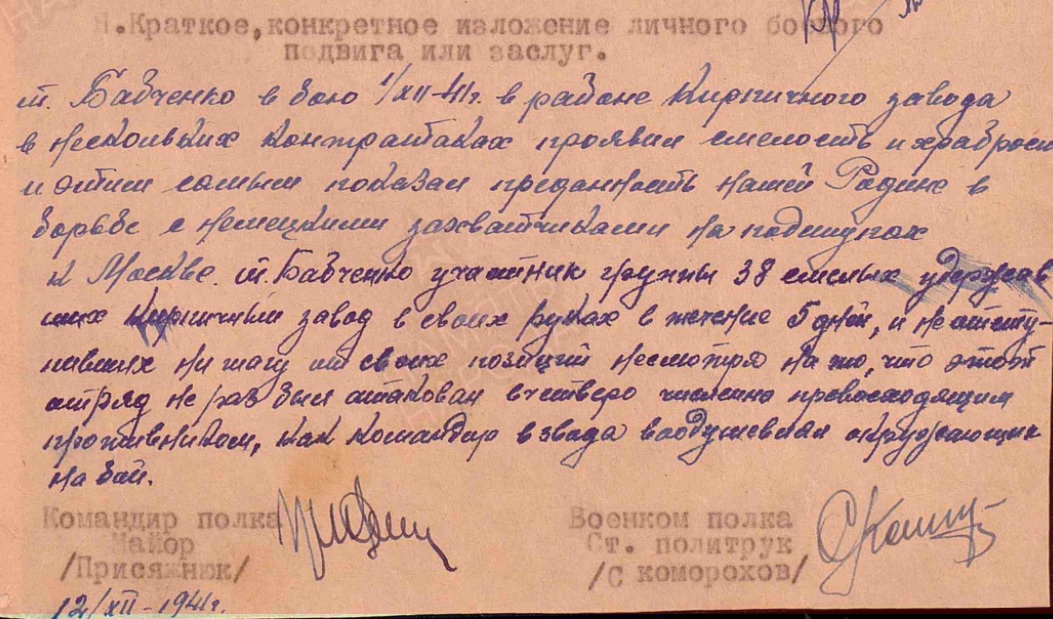 I.Краткое, конкретное изложение личного боевого
подвига или заслуг.
т. Бабченко в бою 1/XII-41г. в районе Кирпичного завода
в нескольких контратаках проявил смелость и храброст
и этим самым показал преданность нашей Родине в
борьбе с немецкими захватчиками на подступах
к Москве. т. Бабченко участник группы 38 смелых удержав
ших Кирпичный завод в своих руках в течение 5 дней, и не отсту-
павших ни шагу от своих позиций несмотря на то, что этот
отряд не раз был атакован вчетверо численно превосходящим
противником, как командир взвода воодушевлял окружающих
на бой.
Командир полка
Майор
/Присяжнюк/
12/XII-1941г.
Военком полка
Ст. политрук
/С коморохов/